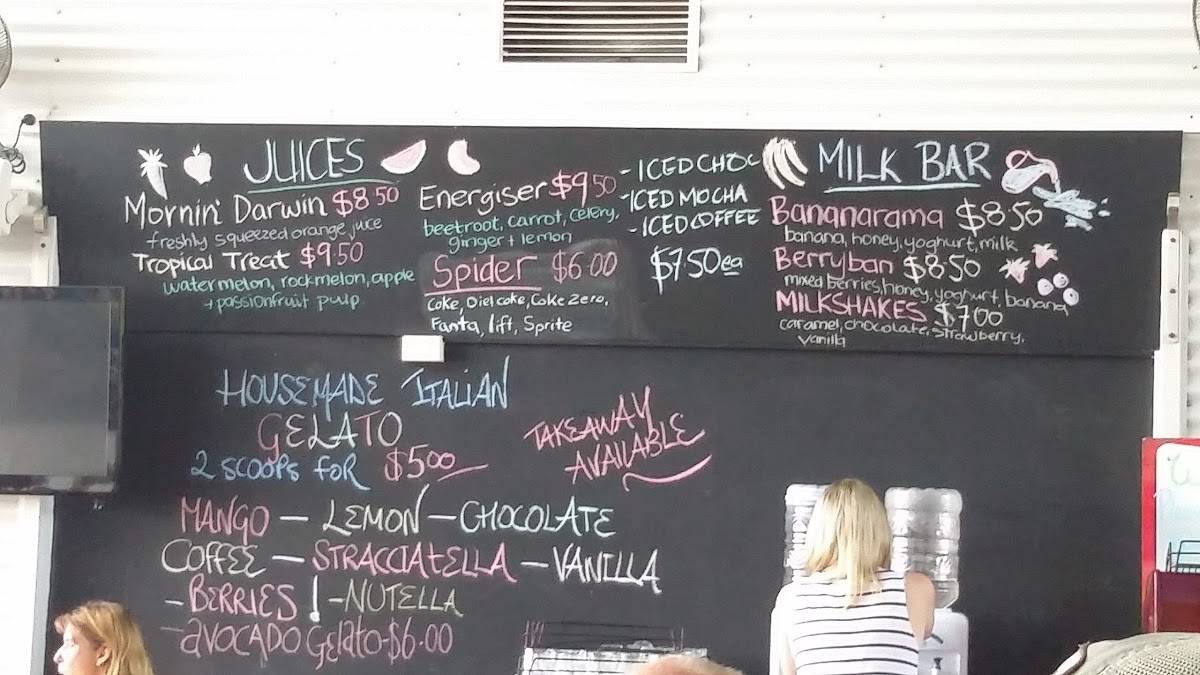 JUICES
Mornin' Darwin $8.50
freshly squeezed orange juice
Tropical Treat $9.50
watermelon, rockmelon, apple
+ passionfruit pulp
Energiser $9.50
beetroot, carrot, celery,
ginger + lemon
Spider $6.00
Coke, Diet coke, Coke Zero,
Fanta, lift, Sprite
- ICED CHOC
- ICED MOCHA
- ICED COFFEE
$7.50 ea
MILK BAR
Bananarama $8.50
banana, honey, yoghurt, milk
Berryban $8.50
mixed berries, honey, yoghurt, banana
MILKSHAKES $7.00
caramel, chocolate, strawberry,
vanilla
HOUSEMADE ITALIAN
GELATO
2 SCOOPS FOR $5.00
TAKEAWAY
AVAILABLE
MANGO - LEMON - CHOCOLATE
COFFEE - STRACCIATELLA - VANILLA
- BERRIES ! - NUTELLA
- AVOCADO Gelato - $6.00